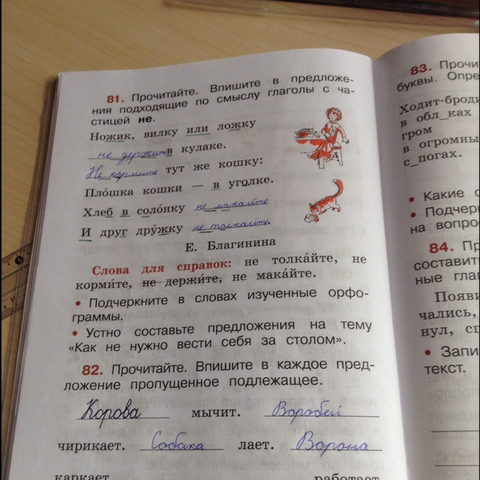 81. Прочитайте. Впишите в предложе-
ния подходящие по смыслу глаголы с ча-
стицей не.
Ножик, вилку или ложку
не держите в кулаке.
Не кормите тут же кошку:
Пло́шка кошки — в уголке.
Хлеб в соло́нку не макайте
И друг дру́жку не толкайте.
Е. Благинина
Слова для справок: не толка́йте, не
корми́те, не держи́те, не мака́йте.
• Подчеркните в словах изученные орфо-
граммы.
• Устно составьте предложения на тему
«Как не нужно вести себя за столом».
82. Прочитайте. Впишите в каждое пред-
ложение пропущенное подлежащее.
Корова мычит. Воробей
чирикает. Собака лает. Ворона
каркает. работает
83. Прочи
буквы. Опре
Ходит-броди
в обл_ках
гром
в огромны
с_погах.
• Какие с
• Подчерк
на вопро
84. Пр
составит
ные глаг
Появи
чались,
нул, сп
• Запи
текст.